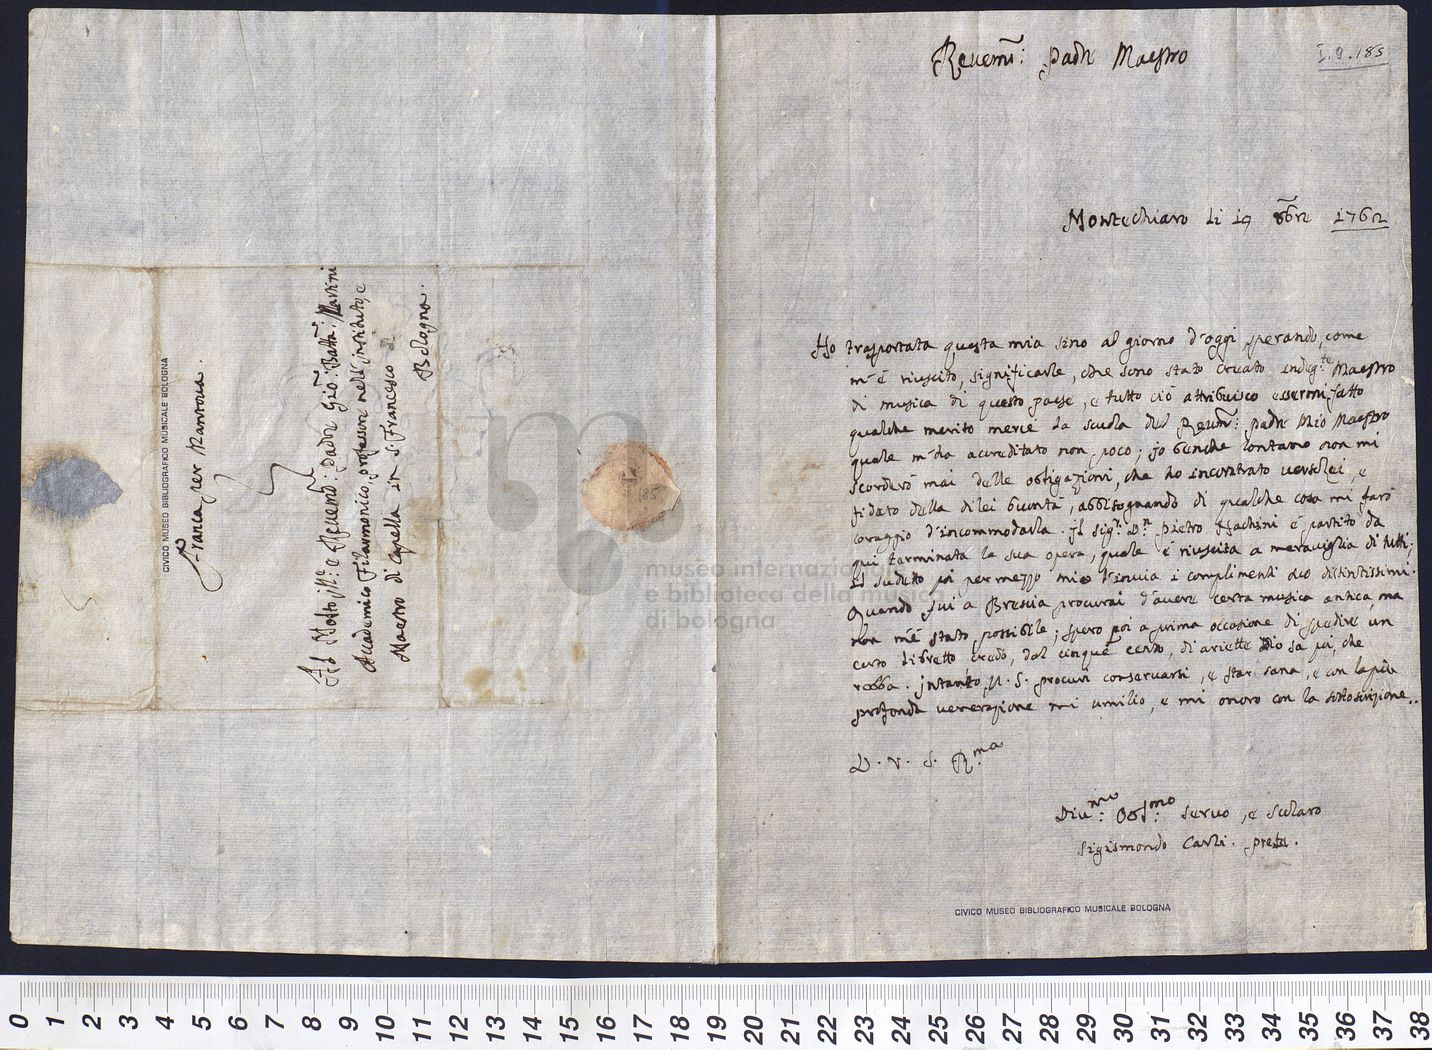 I.9.185
Reuem̄: Padre Maestro
Montechiaro li 19 8bre 1762
Ho trasportata questa mia sino al giorno d'oggi sperando, come
m'è riuscito, significarle, che sono stato creato indeg:te Maestro
di musica di questo paese, e tutto ciò attribuisco essermi fatto
qualche merito mercè la scuola del Reum̄: Padre Mio Maestro
quale m'ha accreditato non poco; jo benche lontano non mi
scorderò mai delle obligazioni, che ho incontrato verso lei, e
fidato della di lei buntà, abbisognando di qualche cosa mi farò
coraggio d'incommodarla. Jl Sig:r D:n Pietro
è partito da
qui terminata la sua opera, quale è riuscita a meraviglia di tutti;
il sudeto poi per mezzo mio l'invia i complimenti suo distintissimi.
Quando fui a Brescia procurai d'avere certa musica antica, ma
non m'è stato possibile; spero poi a prima occasione di spedire un
certo libretto credo, dal cinque cento, di ariette Dio sa poi che
robba. jntanto, V. S. procuri conservarsi, e star sana, e con la più
profonda venerazione mi umilio, e mi onoro con la sottoscrizione..
D. V. S. R:ma
Diu:mo Obs:mo Seruo, e Scolaro
Sigismondo Carli. prete.
CIVICO MUSEO BIBLIOGRAFICO MUSICALE BOLOGNA
Al Molto Jll:e e Reuemō: Padre Giō: Batta: Martini
Accademico Filarmonico, professore nell'instituto, e
Maestro di Capella in S. Francesco di
Bologna.
Franca per Mantova.
CIVICO MUSEO BIBLIOGRAFICO MUSICALE BOLOGNA
185
museo internazionale
e biblioteca della musica
di bologna
0 1 2 3 4 5 6 7 8 9 10 11 12 13 14 15 16 17 18 19 20 21 22 23 24 25 26 27 28 29 30 31 32 33 34 35 36 37 38